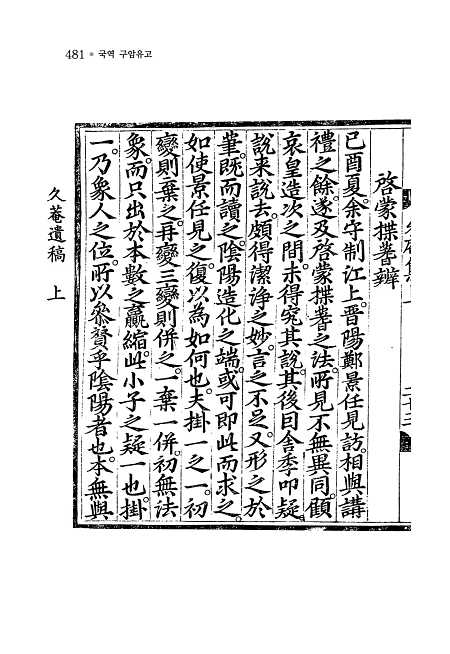 481 ● 국역 구암유고
啓蒙揲蓍辨
己酉夏。余守制江上。晋陽鄭景任見訪。相與講
禮之餘。遂及啓蒙揲蓍之法。所見不無異同。顧
哀皇造次之間。未得究其說。其後曰舍季叩疑。
說来說去。頗得潔淨之妙。言之不足。又形之於
筆。旣而讀之。陰陽造化之端。或可即此而求之。
如使景任見之。復以為如何也。夫掛一之一。初
變則棄之。再變三變則併之。一棄一併。初無法
象。而只出於本數之贏縮。此小子之疑一也。掛
一。乃象人之位。所以叅賛乎陰陽者也。本無與
久菴遺稿 上